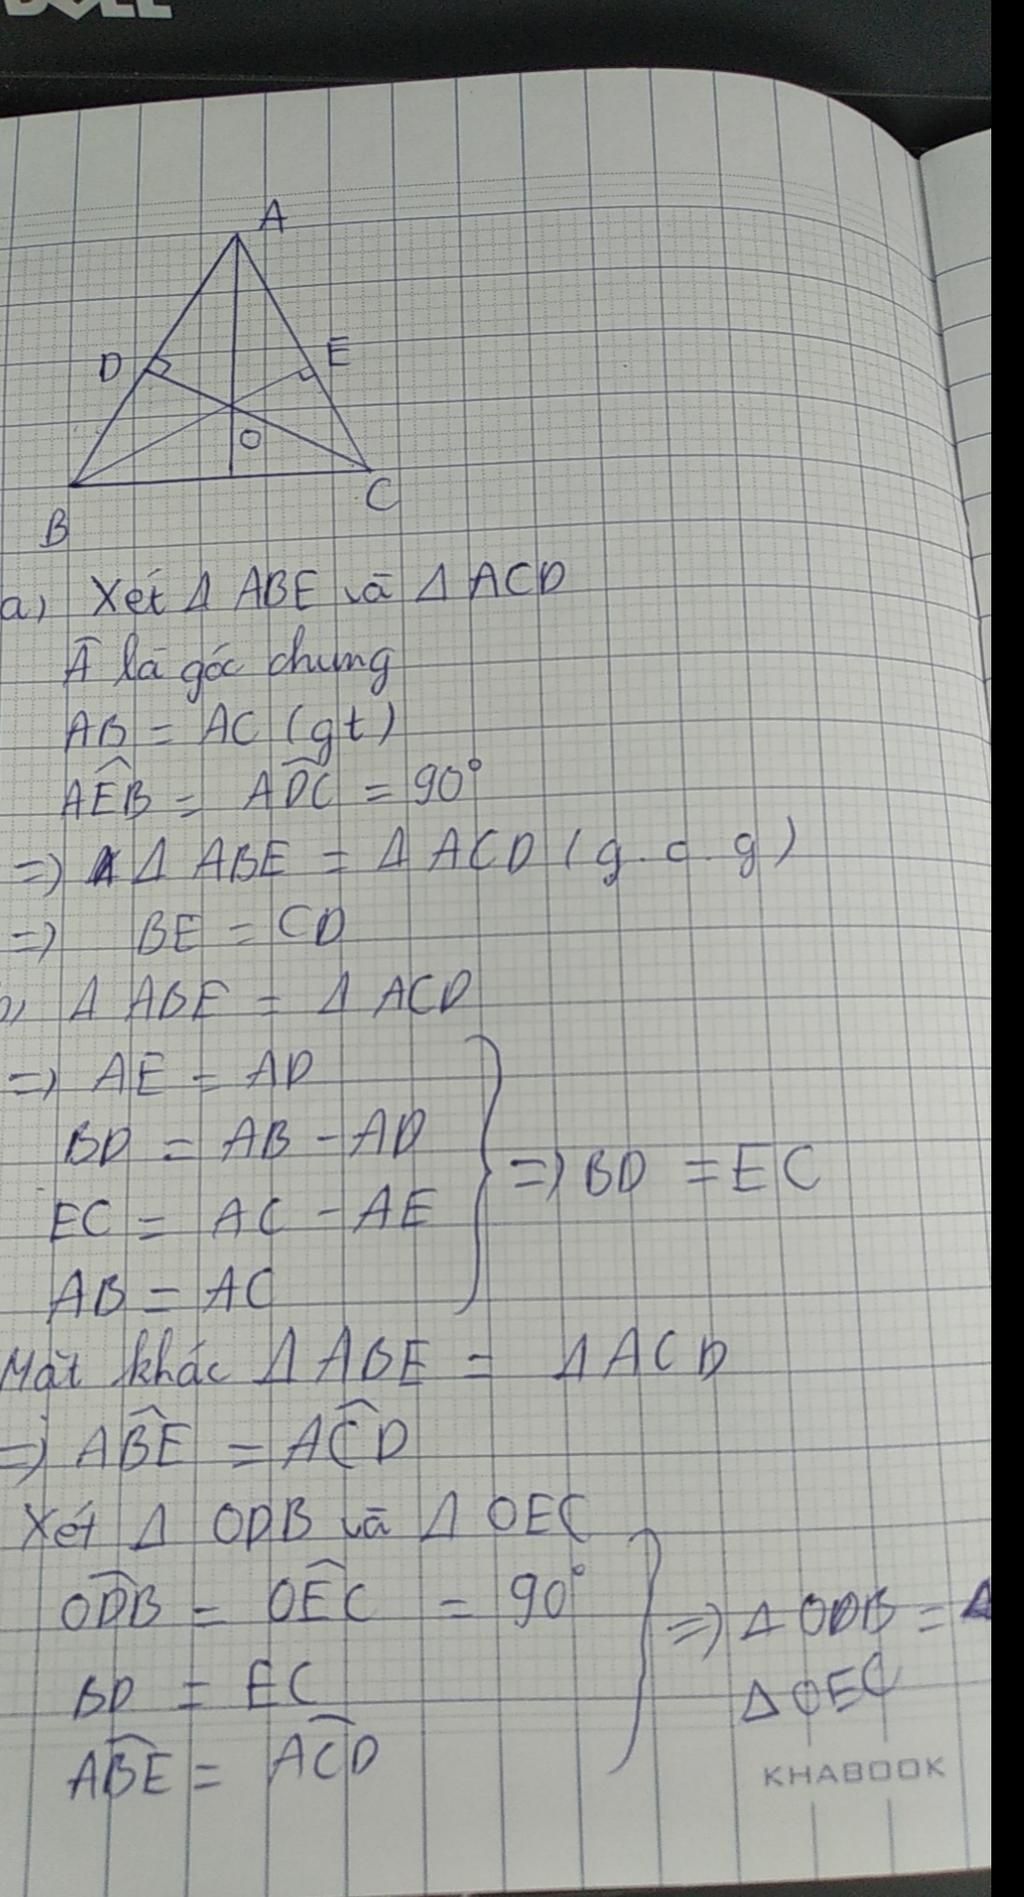 DELL
A
D
E
O
B
C
a) Xét Δ ABE và Δ ACD
Â là góc chung
AB = AC (gt)
AÊB = AD̂C = 90°
=> Δ ABE = Δ ACD (g.c.g)
=> BE = CD
b, Δ ABE = Δ ACD
=> AE = AD
BD = AB - AD
EC = AC - AE
AB = AC
=> BD = EC
Mặt khác Δ ABE = Δ ACD
=> AB̂E = AĈD
Xét Δ ODB và Δ OEC
OD̂B = OÊC = 90°
BD = EC
AB̂E = AĈD
=> Δ ODB = Δ
Δ OEC
KHABOOK